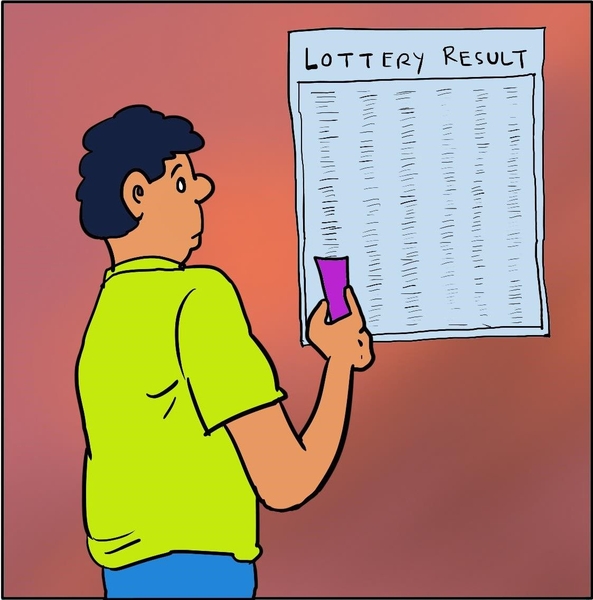 LOTTERY RESULT